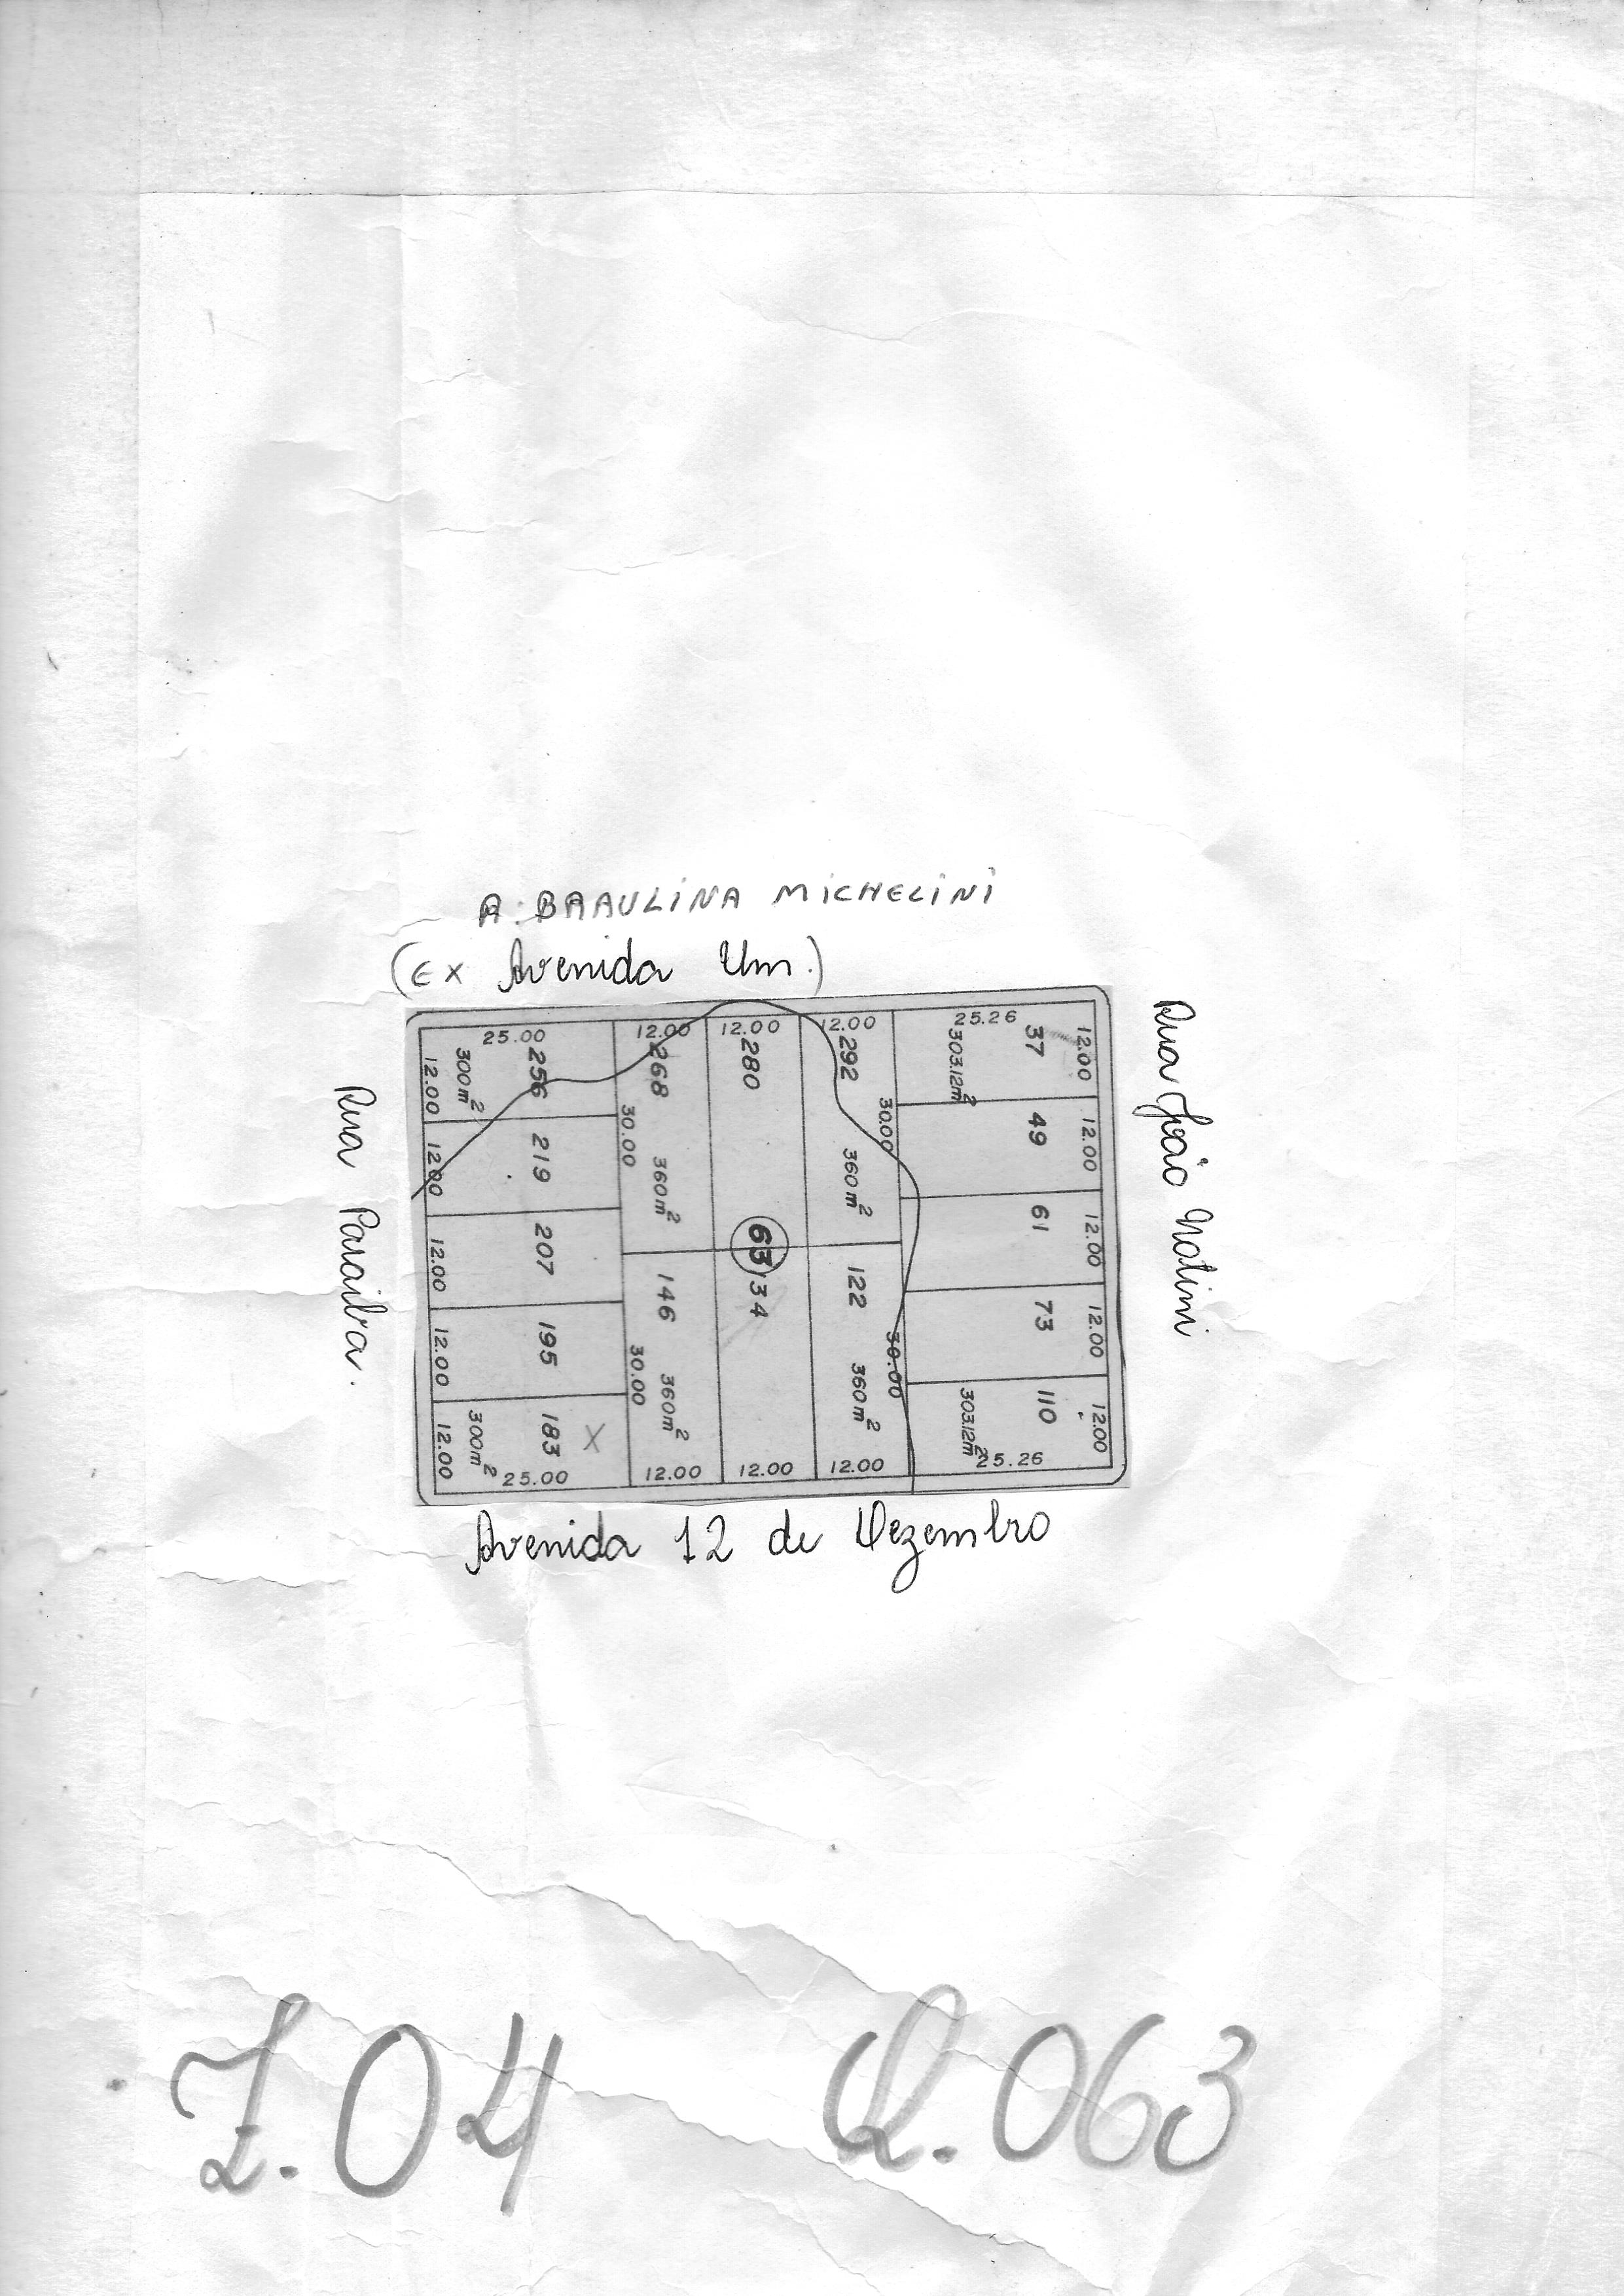 A. BRAULINA MICHELINI
(EX Avenida Um.)
25.00 12.00 12.00 12.00 25.26
256 268 280 292 37 12.00
300m² 12.00 303.12m²
30.00 30.00
219 12.00 49 12.00
360m² 360m²
207 12.00 61 12.00
63
146 134 122
195 12.00 73 12.00
30.00 30.00
360m² 360m²
183 X 12.00 110 12.00
300m² 303.12m²
25.00 12.00 12.00 12.00 25.26
Rua Paraiba.
Rua João
Avenida 12 de Dezembro
Z.04 Q.063